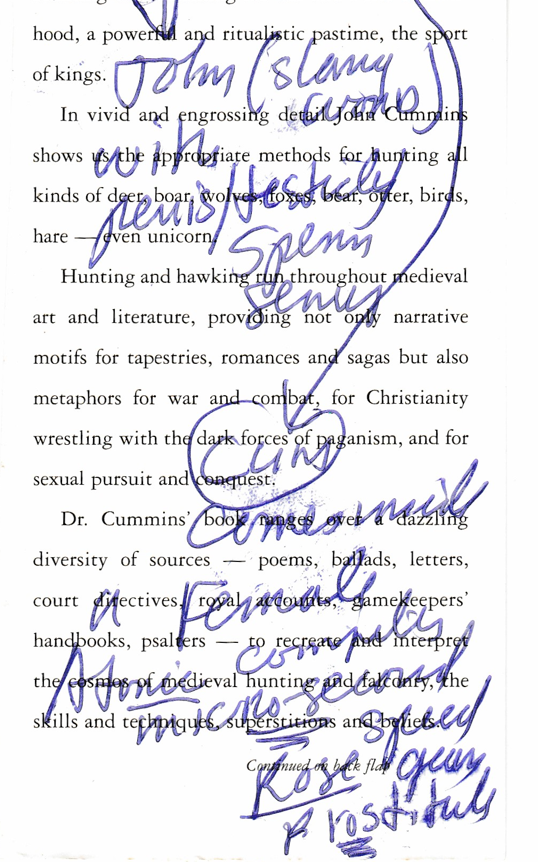 hood, a powerful and ritualistic pastime, the sport
of kings.
John (slang
In vivid and engrossing detail John Cummins
words)
shows us the appropriate methods for hunting all
with
kinds of deer, boar, wolves, foxes, bear, otter, birds,
penis/testicly
hare — even unicorn.
Sperm
Hunting and hawking run throughout medieval
art and literature, providing not only narrative
motifs for tapestries, romances and sagas but also
metaphors for war and combat, for Christianity
wrestling with the dark forces of paganism, and for
sexual pursuit and conquest.
Dr. Cummins' book ranges over a dazzling
Comes inside
diversity of sources — poems, ballads, letters,
court directives, royal accounts, gamekeepers'
a Female
handbooks, psalters — to recreate and interpret
computer
the cosmos of medieval hunting and falconry, the
Atomic
micro-second
skills and techniques, superstitions and beliefs.
speed
Continued on back flap
Rose